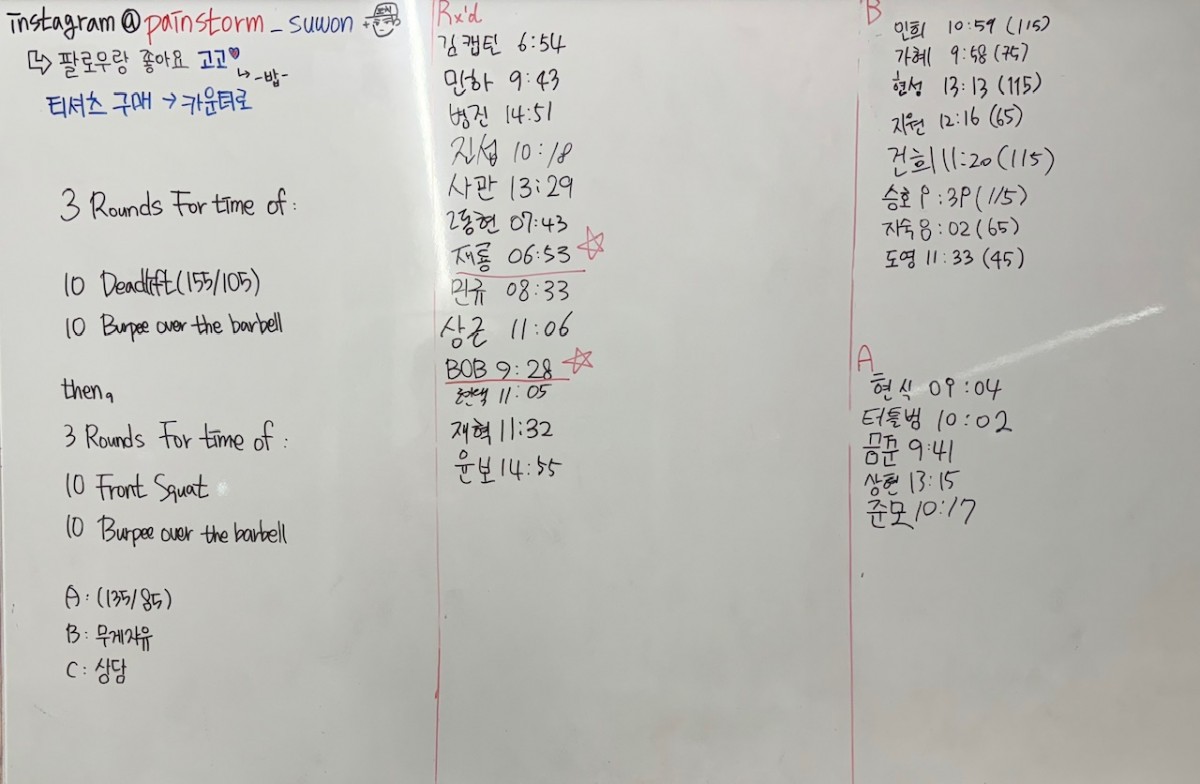 instagram@painstorm_suwon
팔로우랑 좋아요 고고
-밥-
티셔츠 구매 → 카운터로
3 Rounds For time of :
10 Deadlift (155/105)
10 Burpee over the barbell
then,
3 Rounds For time of :
10 Front Squat
10 Burpee over the barbell
A : (135/85)
B : 무게자유
C : 상담
Rx'd
김캡틴 6:54
민하 9:43
병진 14:51
진섭 10:18
사관 13:29
2동현 07:43
재룡 06:53
민규 08:33
상근 11:06
BOB 9:28
현택 11:05
재혁 11:32
윤보 14:55
B
민희 10:59 (115)
가혜 9:58 (75)
현성 13:13 (115)
지원 12:16 (65)
건희 11:20 (115)
승호 9:39 (115)
지숙 8:02 (65)
도영 11:33 (45)
A
현식 09:04
터틀범 10:02
9:41
상현 13:15
준모 10:17